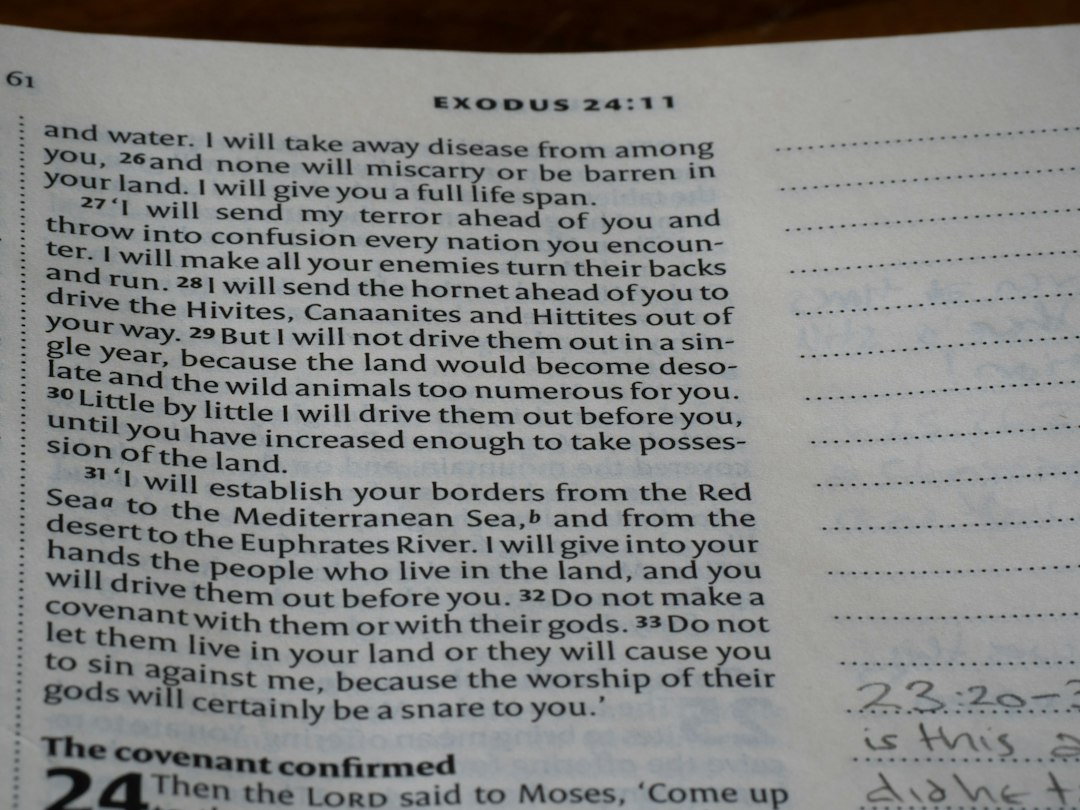 61
EXODUS 24:11
and water. I will take away disease from among
you, 26 and none will miscarry or be barren in
your land. I will give you a full life span.
27 ‘I will send my terror ahead of you and
throw into confusion every nation you encoun-
ter. I will make all your enemies turn their backs
and run. 28 I will send the hornet ahead of you to
drive the Hivites, Canaanites and Hittites out of
your way. 29 But I will not drive them out in a sin-
gle year, because the land would become deso-
late and the wild animals too numerous for you.
30 Little by little I will drive them out before you,
until you have increased enough to take posses-
sion of the land.
31 ‘I will establish your borders from the Red
Sea a to the Mediterranean Sea, b and from the
desert to the Euphrates River. I will give into your
hands the people who live in the land, and you
will drive them out before you. 32 Do not make a
covenant with them or with their gods. 33 Do not
let them live in your land or they will cause you
to sin against me, because the worship of their
gods will certainly be a snare to you.’
The covenant confirmed
24 Then the LORD said to Moses, ‘Come up
23:20-3
is this